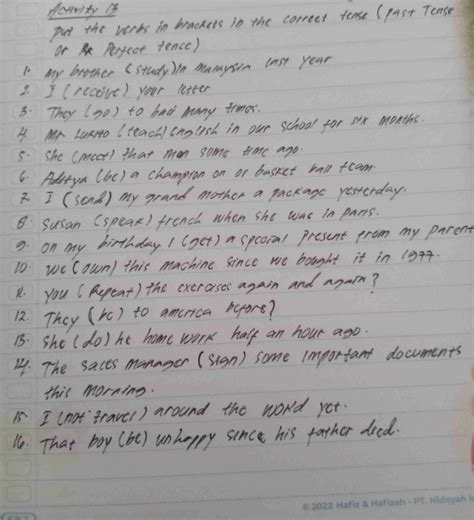 Activity 13
put the verbs in brackets in the correct tense (past Tense
or Perfect tence)
1. My brother (study) in malaysia last year
2. I (receive) your letter
3. They (go) to bali many times.
4. Mr. Lukito (teach) english in our school for six months.
5. She (meet) that man some time ago.
6. Aditya (be) a champion on or basket ball team.
7. I (send) my grand mother a package yesterday.
8. Susan (speak) french when she was in paris.
9. On my birthday I (get) a special present from my parent
10. We (own) this machine since we bought it in 1977.
11. you (Repeat) the exercises again and again?
12. They (be) to america before?
13. She (do) he home work half an hour ago.
14. The sales manager (sign) some important documents
this morning.
15. I (not travel) around the world yet.
16. That boy (be) unhappy since his father died.
© 2022 Hafiz & Hafizah - PT. Hidayah